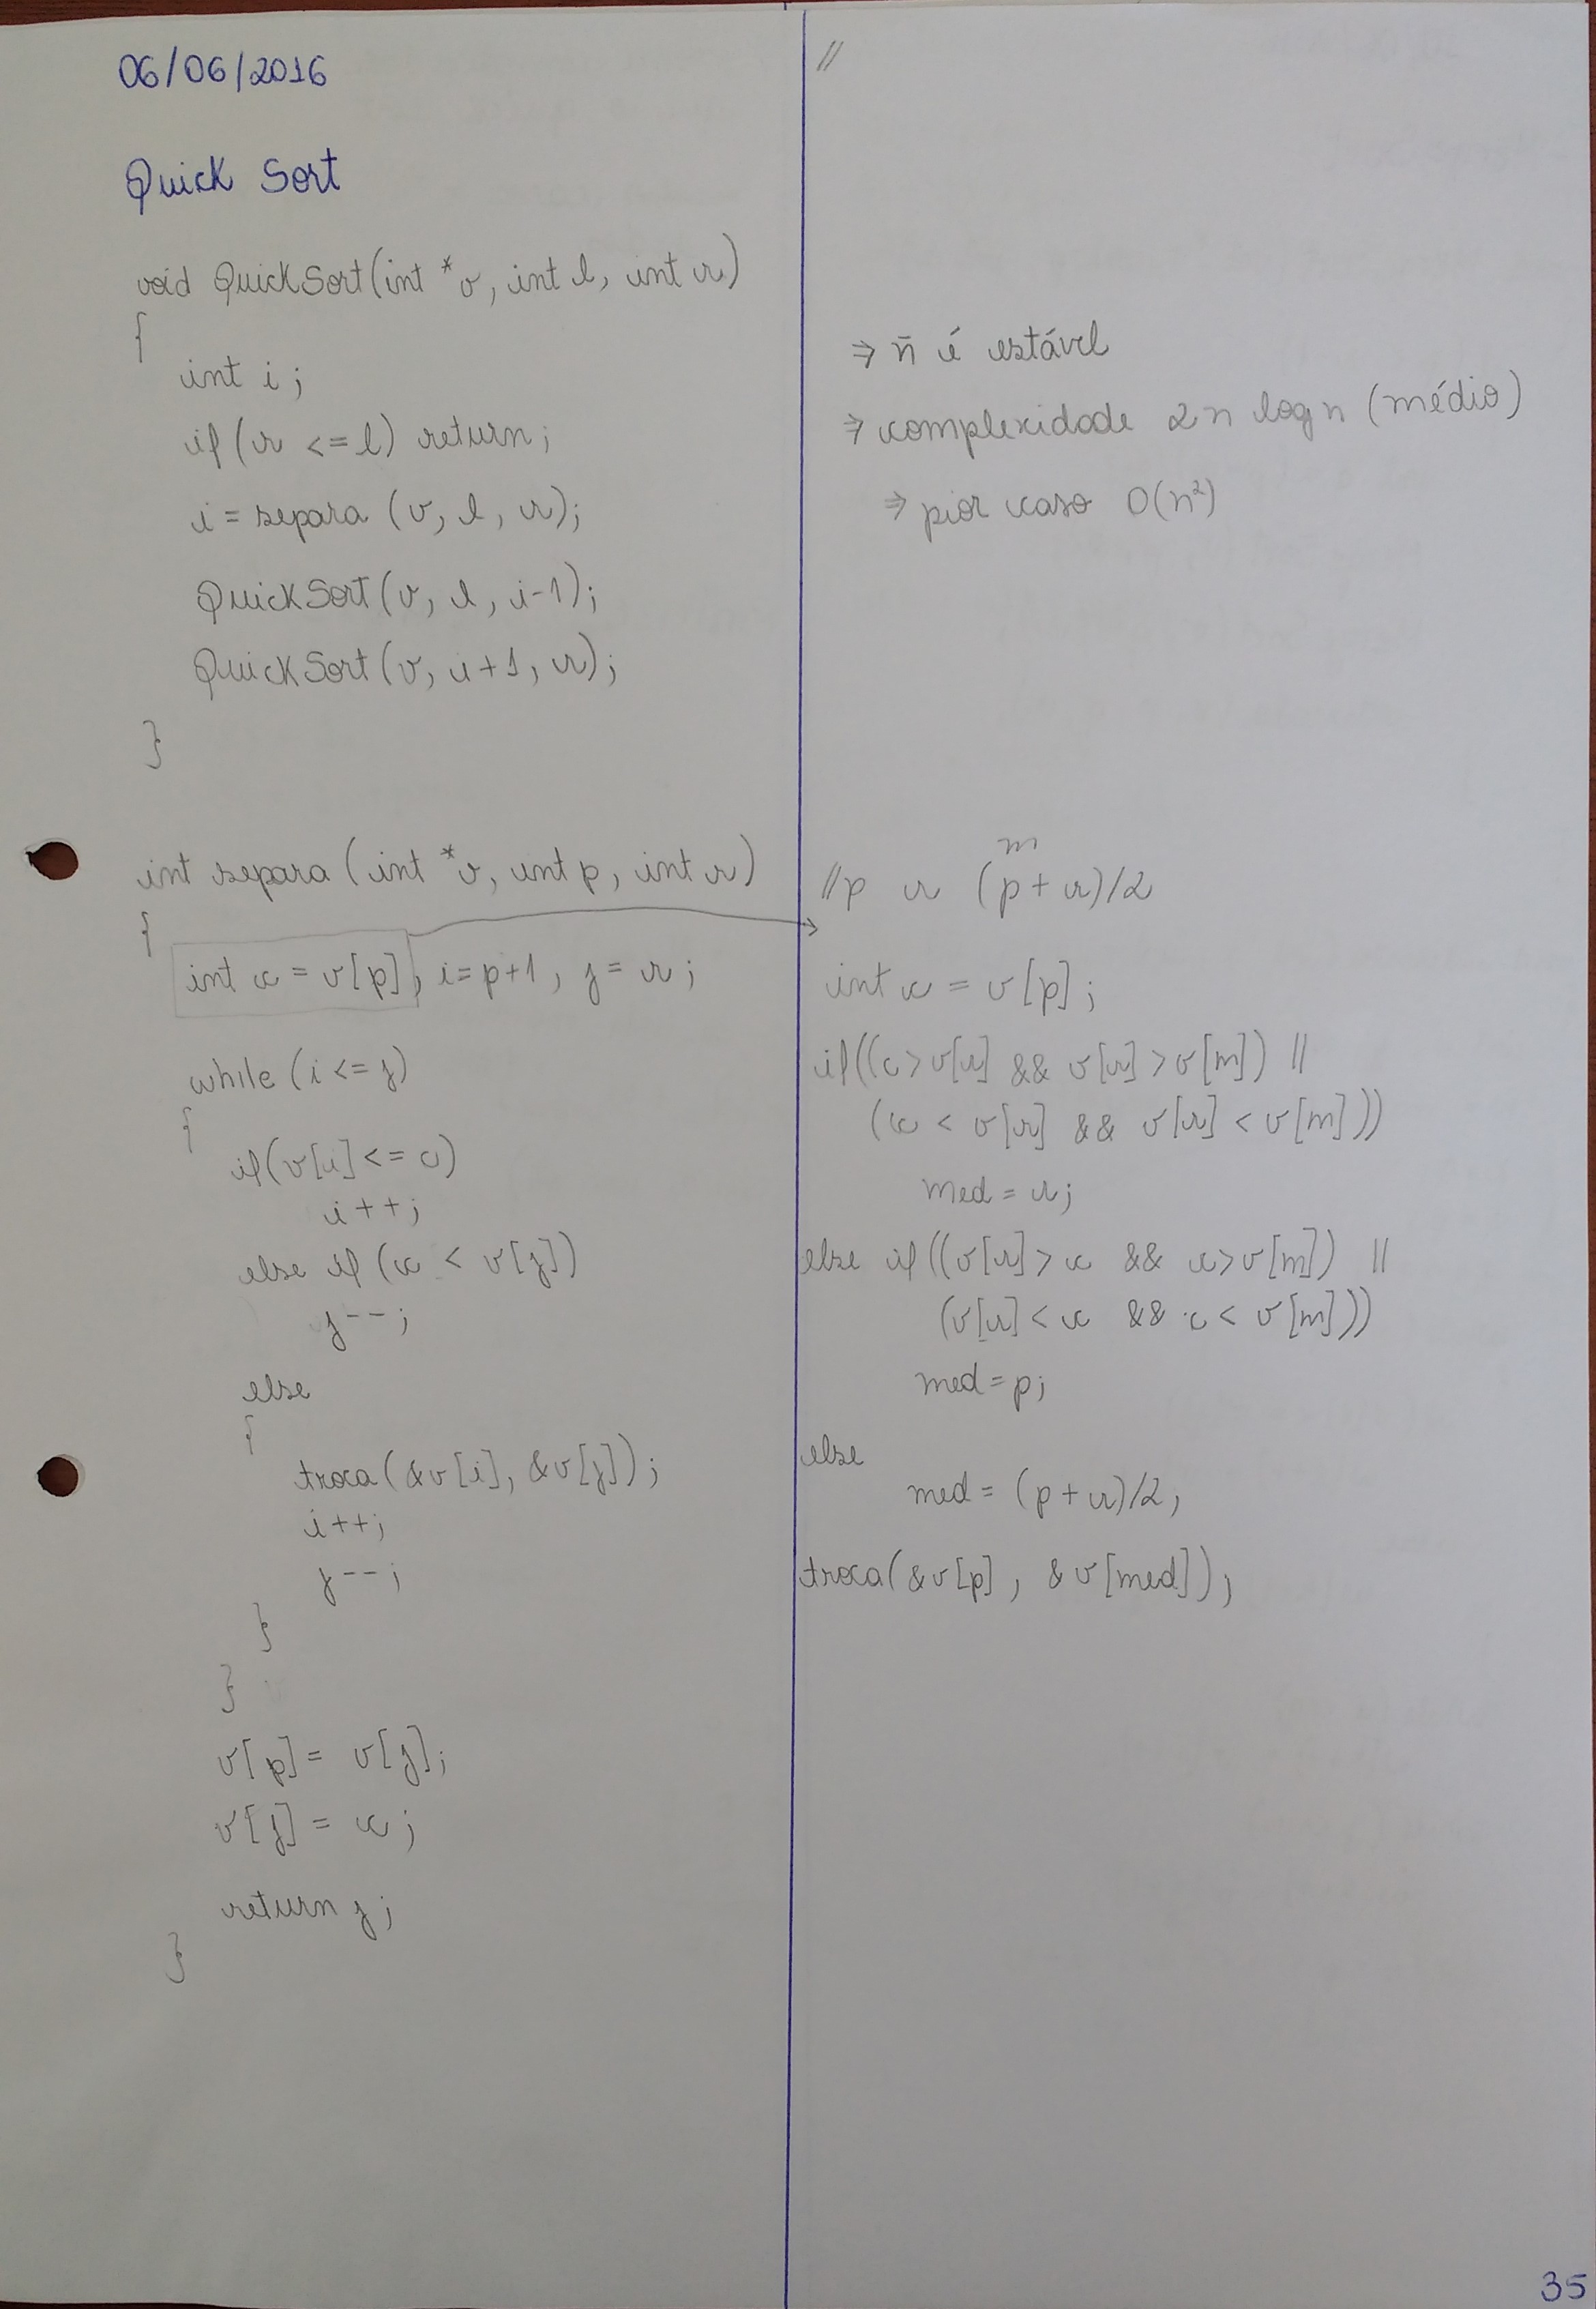 06/06/2016
Quick Sort
void QuickSort(int *v, int l, int r)
{
int i;
if(r <= l) return;
i = separa (v, l, r);
QuickSort(v, l, i-1);
QuickSort(v, i+1, r);
}
int separa (int *v, int p, int r)
{
int c = v[p], i=p+1, j=r;
while (i <= j)
{
if(v[i] <= c)
i++;
else if (c < v[j])
j--;
else
{
troca(&v[i], &v[j]);
i++;
j--;
}
}
v[p] = v[j];
v[j] = c;
return j;
}
//
⇒ ñ é estável
⇒ complexidade 2n log n (médio)
⇒ pior caso O(n²)
m
//p r (p+r)/2
int c = v[p];
if((c>v[r] && v[r]>v[m]) ||
(c < v[r] && v[r] < v[m]))
med = r;
else if((v[r]>c && c>v[m]) ||
(v[r]<c && c< v[m]))
med=p;
else
med = (p+r)/2;
troca(&v[p], &v[med]);
35